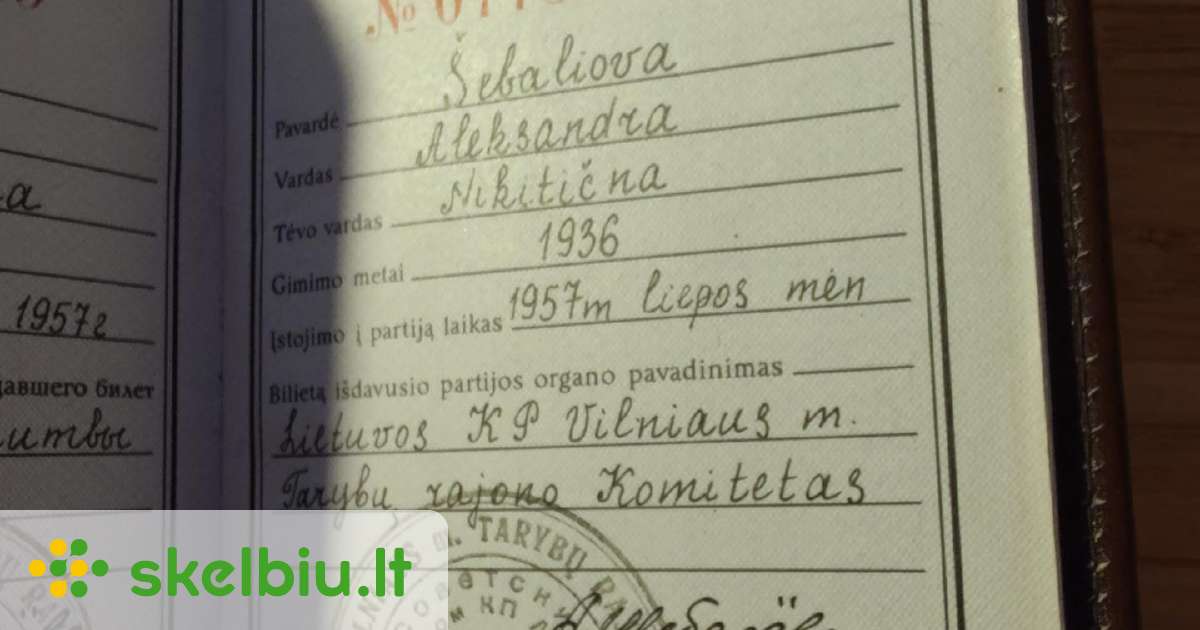 № 
Šebaliova
Pavardė
Aleksandra
Vardas
Nikitična
Tėvo vardas
1936
Gimimo metai
1957m liepos mėn
Įstojimo į partiją laikas
Bilietą išdavusio partijos organo pavadinimas
Lietuvos KP Vilniaus m.
Tarybų rajono Komitetas
m. TARYBŲ
КП
1957г
билет
skelbiu.lt